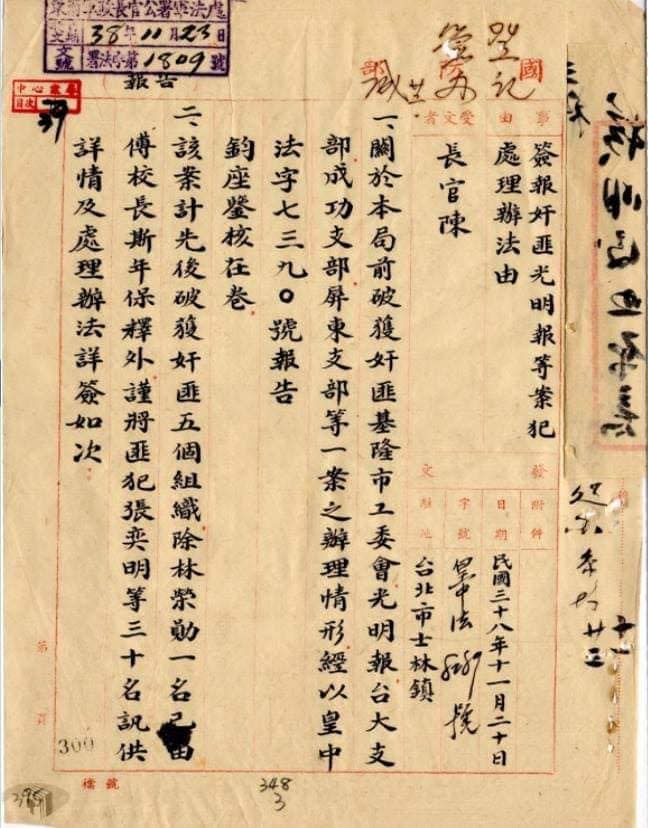 38年11月23日
署法字第1809號
報告
登記
國
部
事由
受文者
簽報奸匪光明報等案犯
處理辦法由
長官陳
發文
附件
日期
字號
駐地
民國三十八年十一月二十日
台北市士林鎮
一、關於本局前破獲奸匪基隆市工委會光明報台大支
部成功支部屏東支部等一案之辦理情形經以皇中
法字七三九〇號報告
鈞座鑒核在卷
二、該案計先後破獲奸匪五個組織除林榮勛一名已由
傅校長斯年保釋外謹將匪犯張奕明等三十名訊供
詳情及處理辦法詳簽如次
第
頁
300
檔號
348
3